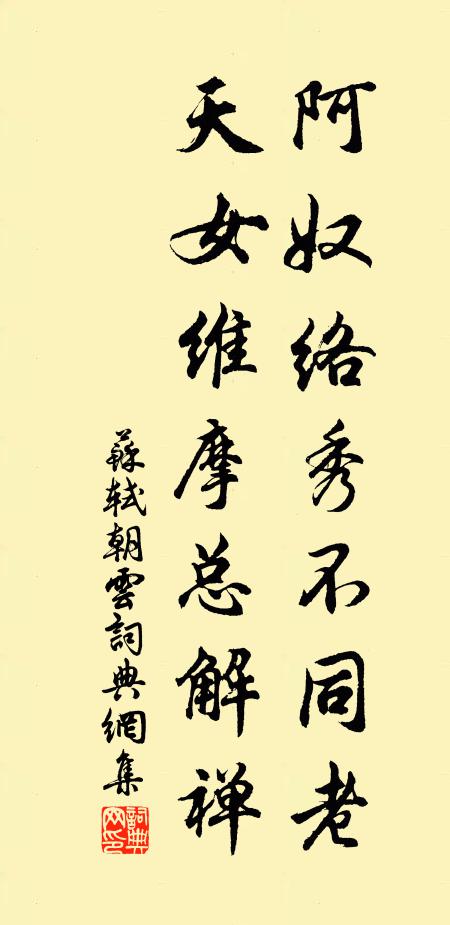 阿奴络秀不同老
天女维摩总解禅
蘇軾朝雲詞典網集
詞典網印